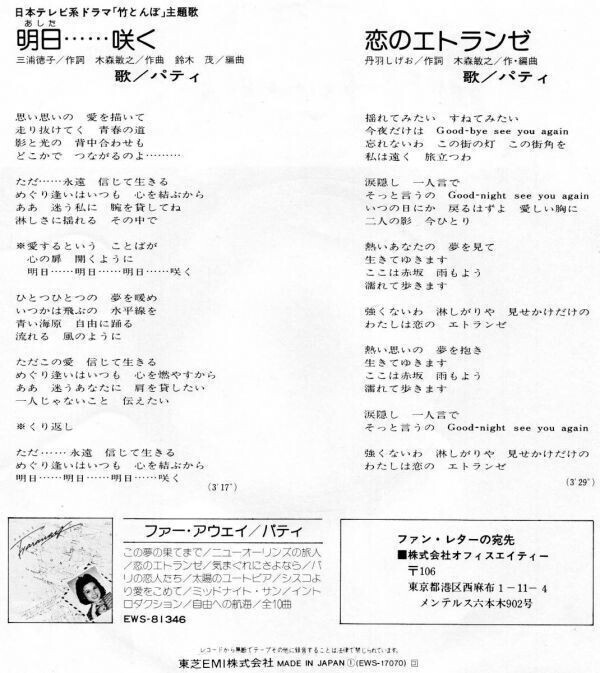 日本テレビ系ドラマ「竹とんぼ」主題歌
あした
明日……咲く
三浦徳子／作詞 木森敏之／作曲 鈴木 茂／編曲
歌／パティ
思い思いの 愛を描いて
走り抜けてく 青春の道
影と光の 背中合わせも
どこかで つながるのよ………
ただ……永遠 信じて生きる
めぐり逢いはいつも 心を結ぶから
ああ 迷う私に 腕を貸してね
淋しさに揺れる その中で
※愛するという ことばが
心の扉 開くように
明日……明日……明日……咲く
ひとつひとつの 夢を暖め
いつかは飛ぶの 水平線を
青い海原 自由に踊る
流れる 風のように
ただこの愛 信じて生きる
めぐり逢いはいつも 心を燃やすから
ああ 迷うあなたに 肩を貸したい
一人じゃないこと 伝えたい
※くり返し
ただ……永遠 信じて生きる
めぐり逢いはいつも 心を結ぶから
明日……明日……明日……咲く
(3'17")
恋のエトランゼ
丹羽しげお／作詞 木森敏之／作・編曲
歌／パティ
揺れてみたい すねてみたい
今夜だけは Good-bye see you again
忘れないわ この街の灯 この街角を
私は遠く 旅立つわ
涙隠し 一人言で
そっと言うの Good-night see you again
いつの日にか 戻るはずよ 愛しい胸に
二人の影 今ひとり
熱いあなたの 夢を見て
生きてゆきます
ここは赤坂 雨もよう
濡れて歩きます
強くないわ 淋しがりや 見せかけだけの
わたしは恋の エトランゼ
熱い思いの 夢を抱き
生きてゆきます
ここは赤坂 雨もよう
濡れて歩きます
涙隠し 一人言で
そっと言うの Good-night see you again
強くないわ 淋しがりや 見せかけだけの
わたしは恋の エトランゼ
(3'29")
ファー・アウェイ／パティ
この夢の果てまで／ニューオーリンズの旅人
／恋のエトランゼ／気まぐれにさよなら／パ
リの恋人たち／太陽のユートピア／シスコよ
り愛をこめて／ミッドナイト・サン／イント
ロダクション／自由への航海／全10曲
EWS-81346
ファン・レターの宛先
■株式会社オフィスエイティー
〒106
東京都港区西麻布1－11－4
メンテルス六本木902号
レコードから無断でテープその他に録音することは法律で禁じられています。
東芝EMI株式会社 MADE IN JAPAN Ⓘ(EWS-17070)